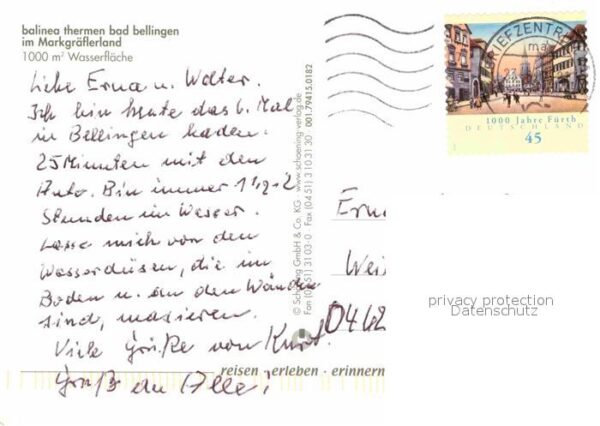 balinea thermen bad bellingen
im Markgräflerland
1000 m² Wasserfläche
Liebe Erna u. Walter.
Ich bin heute das 6. Mal
in Bellingen baden.
25 Minuten mit dem
Auto. Bin immer 1 1/2-2
Stunden im Wasser.
Lasse mich von den
Wasserdüsen, die im
Boden u. an den Wänden
sind, masieren.
Viele Grüße von Kurt.
Gruß an Alle!
reisen · erleben · erinnern
© Schöning GmbH & Co. KG · www.schoening-verlag.de
Fon (04 51) 3 10 3-0 Fax (04 51) 3 10 31 30 001.79415.0182
BRIEFZENTR
1000 Jahre Fürth
DEUTSCHLAND
45
Erna
Wei
0462
privacy protection
Datenschutz